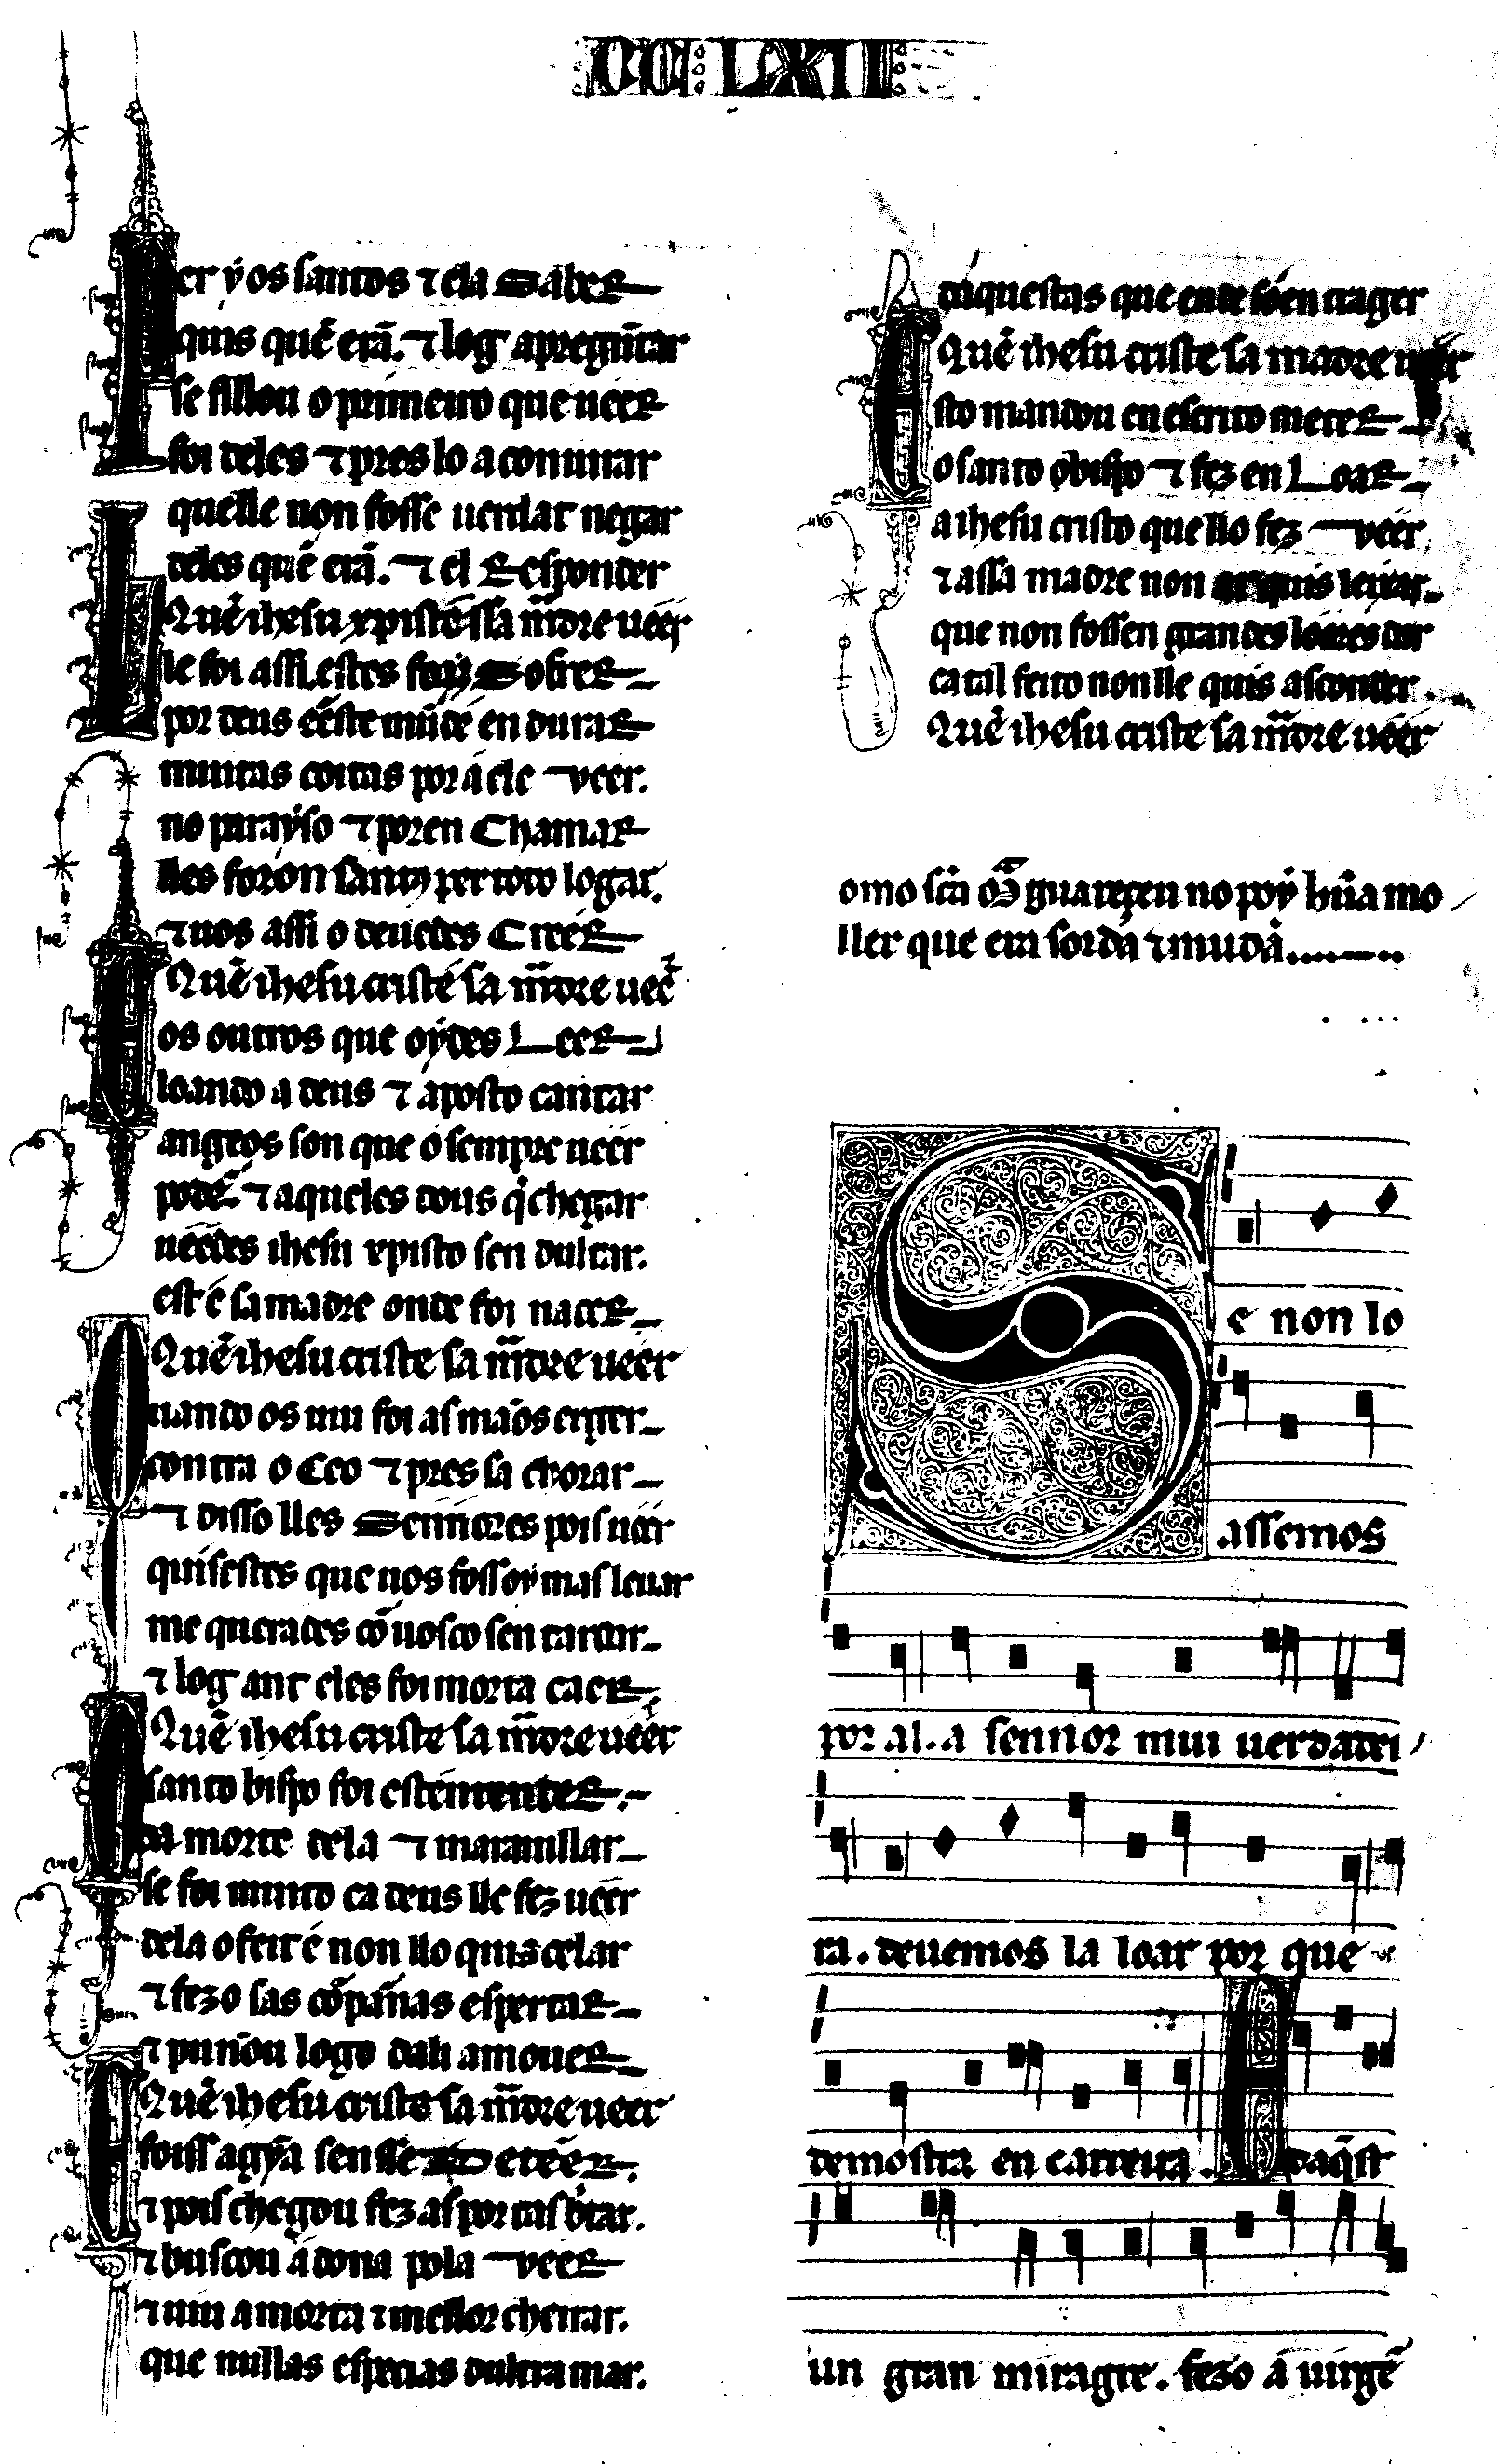 CC: LXII
Per ý os santos ⁊ ela Saber
quis quẽ erã. ⁊ log apregũtar
se fillou o primeiro que ueer
foi deles ⁊ pres lo a coniurar
quelle non fosse uerdat negar
deles quẽ erã. ⁊ el Responder
Quẽ ihesu xpistẽ ssa m̃dre uéér
lle foi assi. estes foỹ Sofrer
por deus eẽste mũdé en durar
muitas coitas por á ele veer.
no paraýso ⁊ poren Chamar
lles foron santus per todo logar.
⁊ uos assi o deuedes Creer
Quẽ ihesu criste sa m̃dre ueer
os outros que oýdes Leer
loando a deus ⁊ aposto cantar
angeos son que o sempre ueer
podẽ. ⁊ aqueles dous q̇ chegar
uéédes ihesu xpisto sen dultar.
est é sa madre onde foi nacer
Quẽ ihesu criste sa m̃dre uéér
uando os uiu foi as mãos erger
contra o Ceo ⁊ pres sa chorar
⁊ disso lles Sennores pois uéér
quisestes que uos foss oy mas leuar
me queirades cõ uosco sen tardar
⁊ log ant eles foi morta caer
Quẽ ihesu criste sa m̃dre uéér
santo bispo foi estemender
da morte dela ⁊ marauillar
se foi muito ca deus lle fez uéér
dela o feit é non llo quis celar
⁊ fezo sas cõpannas espertar
⁊ punnou logo dali a mouer
Quẽ ihesu criste sa m̃dre ueer
foiss agỹa sen sse Deteer.
⁊ pois chegou fez as portas b̓tar.
⁊ buscou á dona pola veer
⁊ uiu a morta ⁊ mellor cheirar.
que nullas especias dultra mar.
daquestas que ende soen trager
Quẽ ihesu criste sa madre uéér
sto mandou en escrito meter
o santo obispo ⁊ fez en Loar
a ihesu cristo que llo fez veer
⁊ a ssa madre non ar quis leixar
que non fossen grandes loores dar
ca tal feito non lle quis asconder.
Quẽ ihesu criste sa m̃dre uéér
omo scã Mã guareçeu no poy hũa mo
ller que era sorda ⁊ muda
Se non lo
assemos
por al. a sennor mui uerdadei
ra. deuemos la loar por que
demostra en carreira. A daq̃st
un gran miragre. fezo á uirgẽ